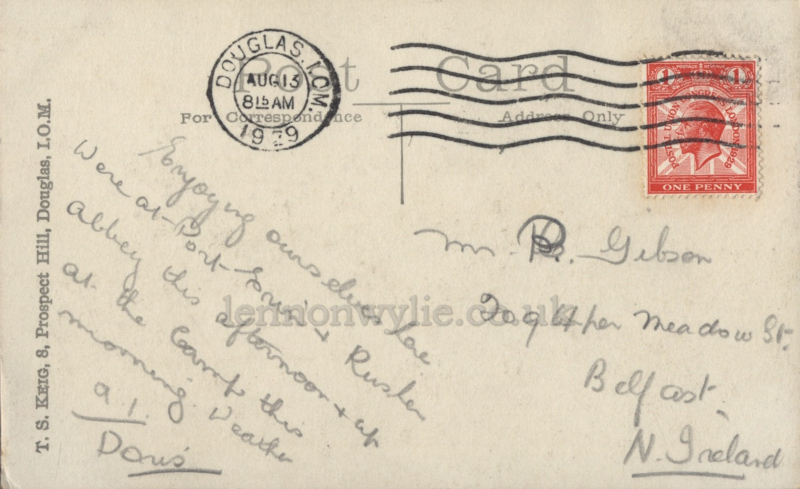 Post Card
For Correspondence
Address Only
DOUGLAS. I.O.M.
AUG 13
8 15 AM
1929
1 1
POSTAL UNION CONGRESS LONDON 1929
ONE PENNY
T. S. KEIG, 8, Prospect Hill, Douglas, I.O.M.
Enjoying ourselves
Were at Port Erin & Rushen
Abbey this afternoon & up
at the Camp this
morning. Weather
a. 1.
Doris
Mr Gibson
Upper Meadow St.
Belfast
N. Ireland
lennonwylie.co.uk